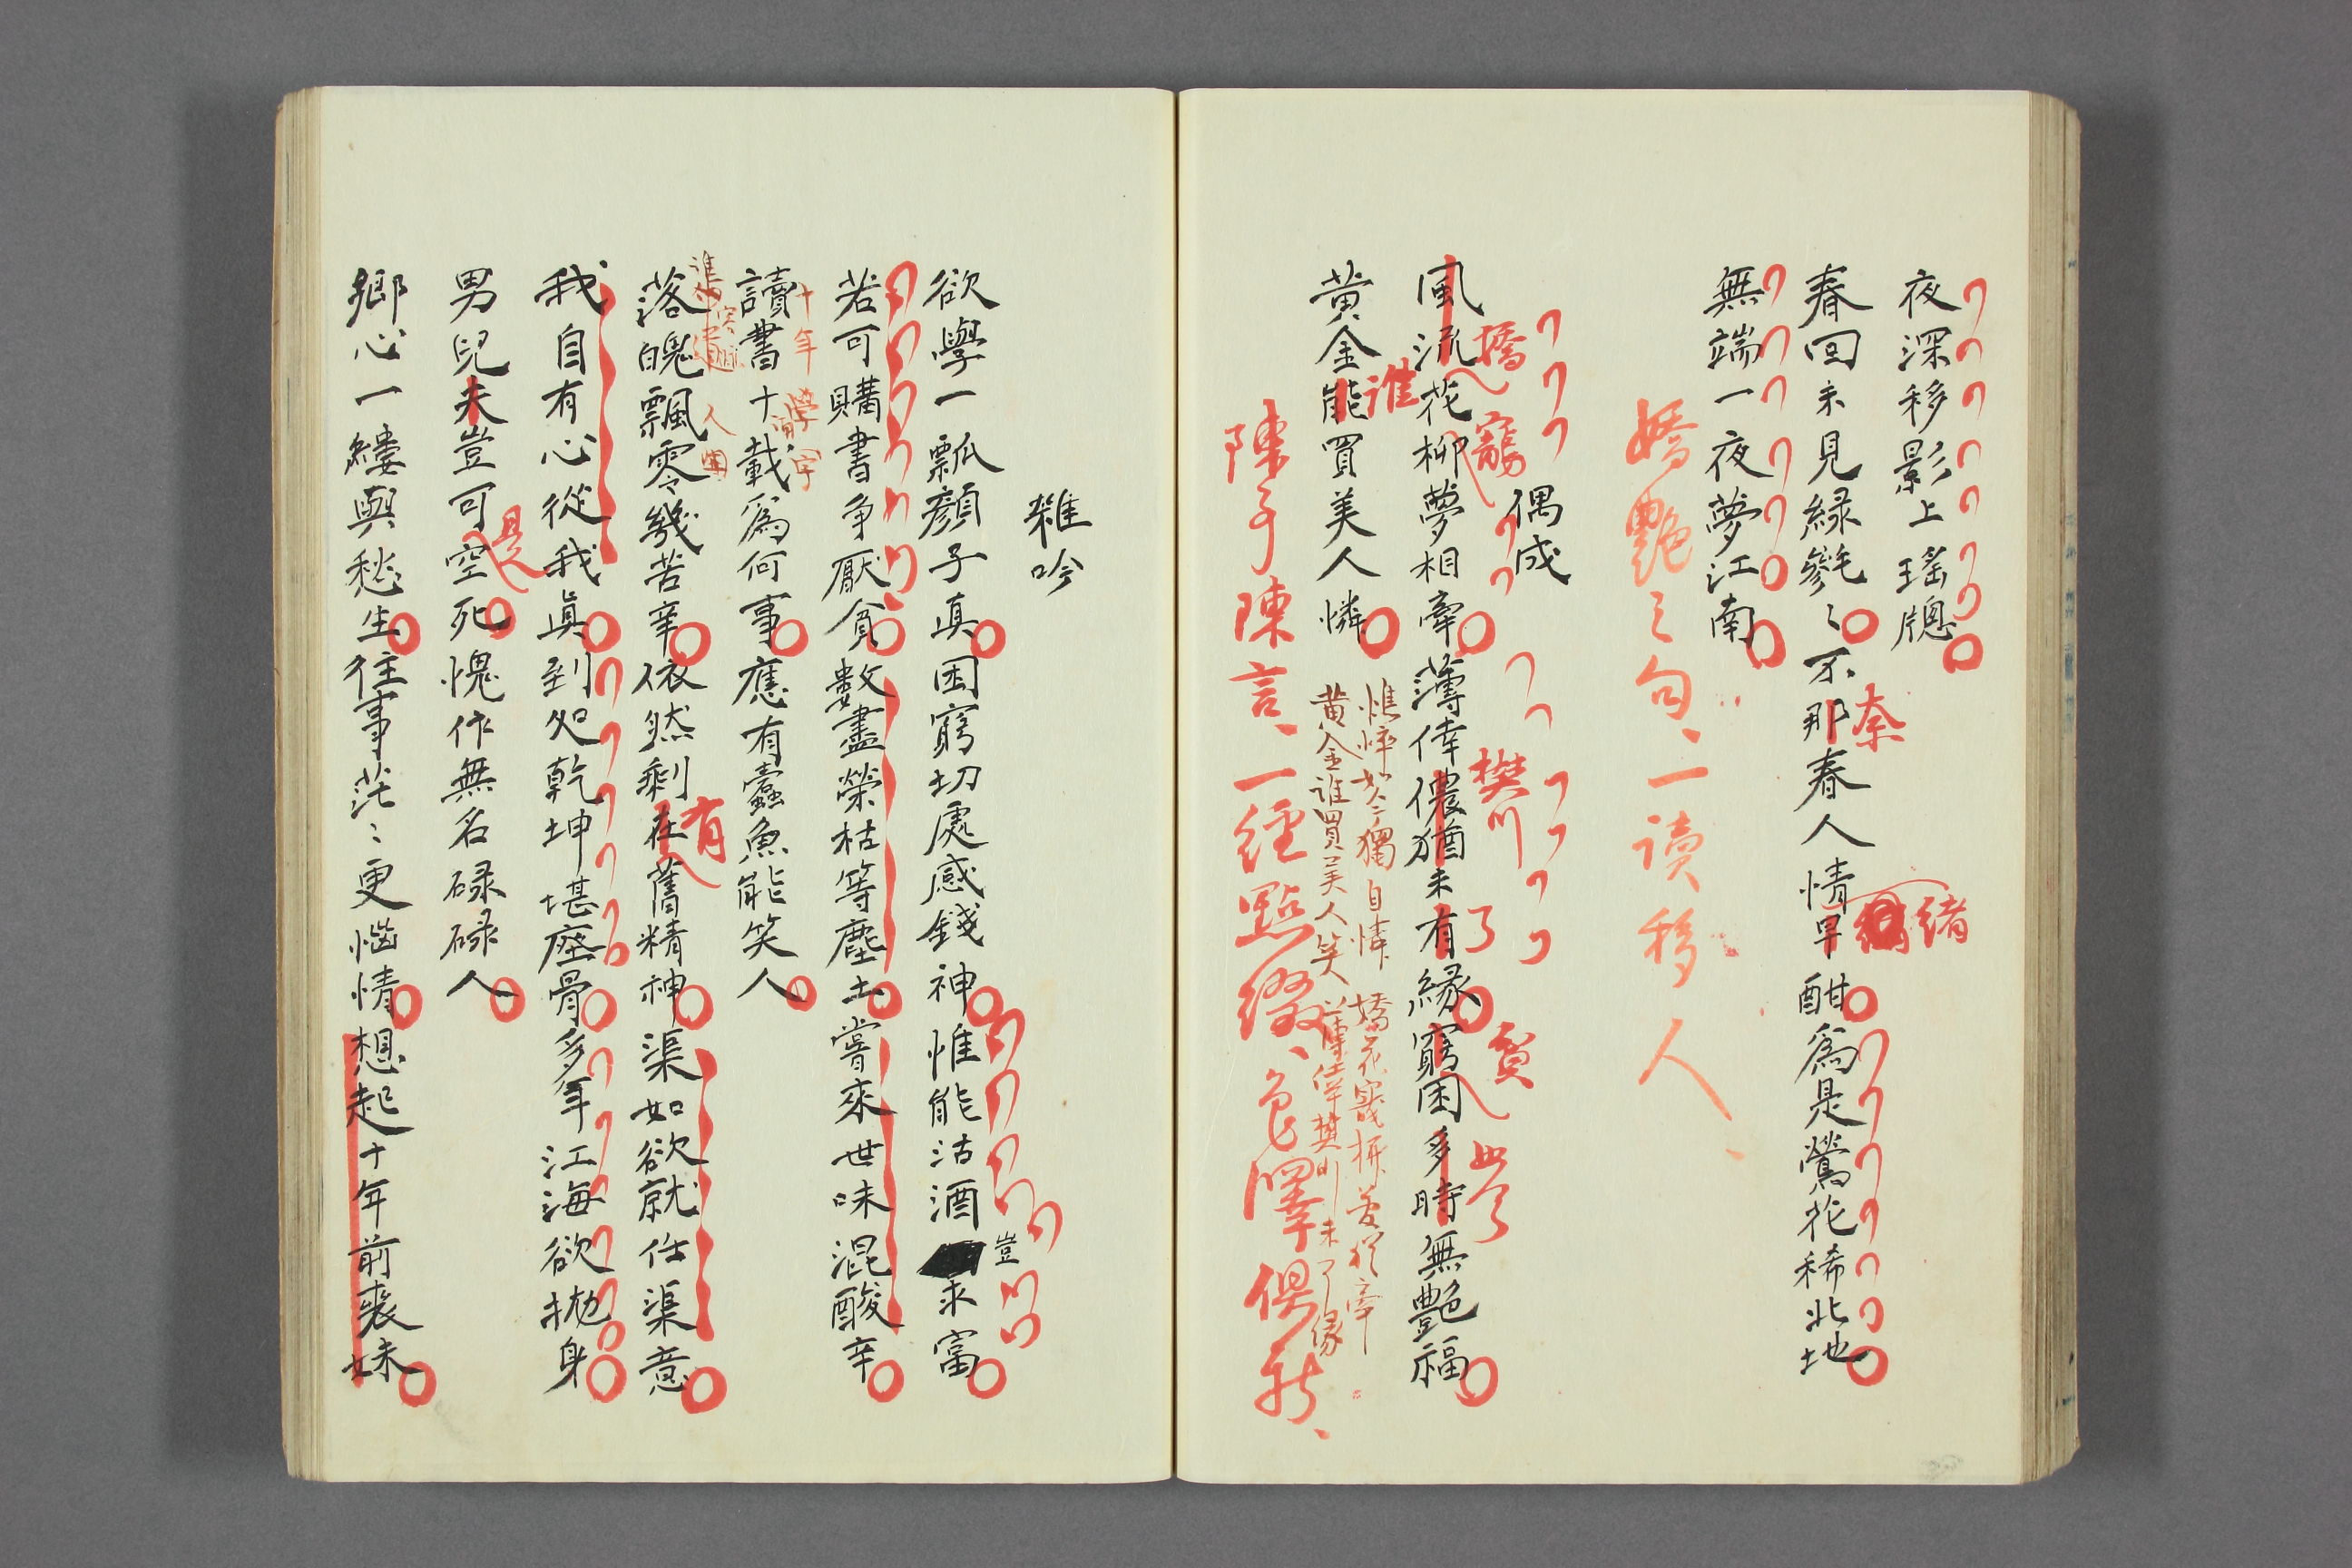 夜深移影上瑤牕
奈
緒
春回未見緑毿〻不那春人情早酣爲是鶯花稀北地
無端一夜夢江南
嬌艷之句、一读移人、
偶成
嬌寵
樊川
了
貧
此今
風流花柳夢相牽薄倖儂猶未有緣窮困多時無艷福
誰
黄金能買美人憐
憔悴如今獨自憐
黄金誰買美人笑
薄倖樊川未了緣
陳子陳言、一經點綴、色澤俱新、
雜吟
豈
欲學一瓢顏子真困窮切處感錢神惟能沽酒求富
若可購書争厭貧數盡榮枯等塵土嘗來世味混酸辛
十年
讀書十載爲何事應有蠹魚能笑人
有
落魄飄零幾苦辛依然剩在舊精神渠如欲就任渠意
我自有心從我眞到処乾坤堪座骨多年江海欲抛身
是
男兒夫豈可空死愧作無名碌碌人
鄉心一縷與愁生往事茫〻更惱情想起十年前裘妹